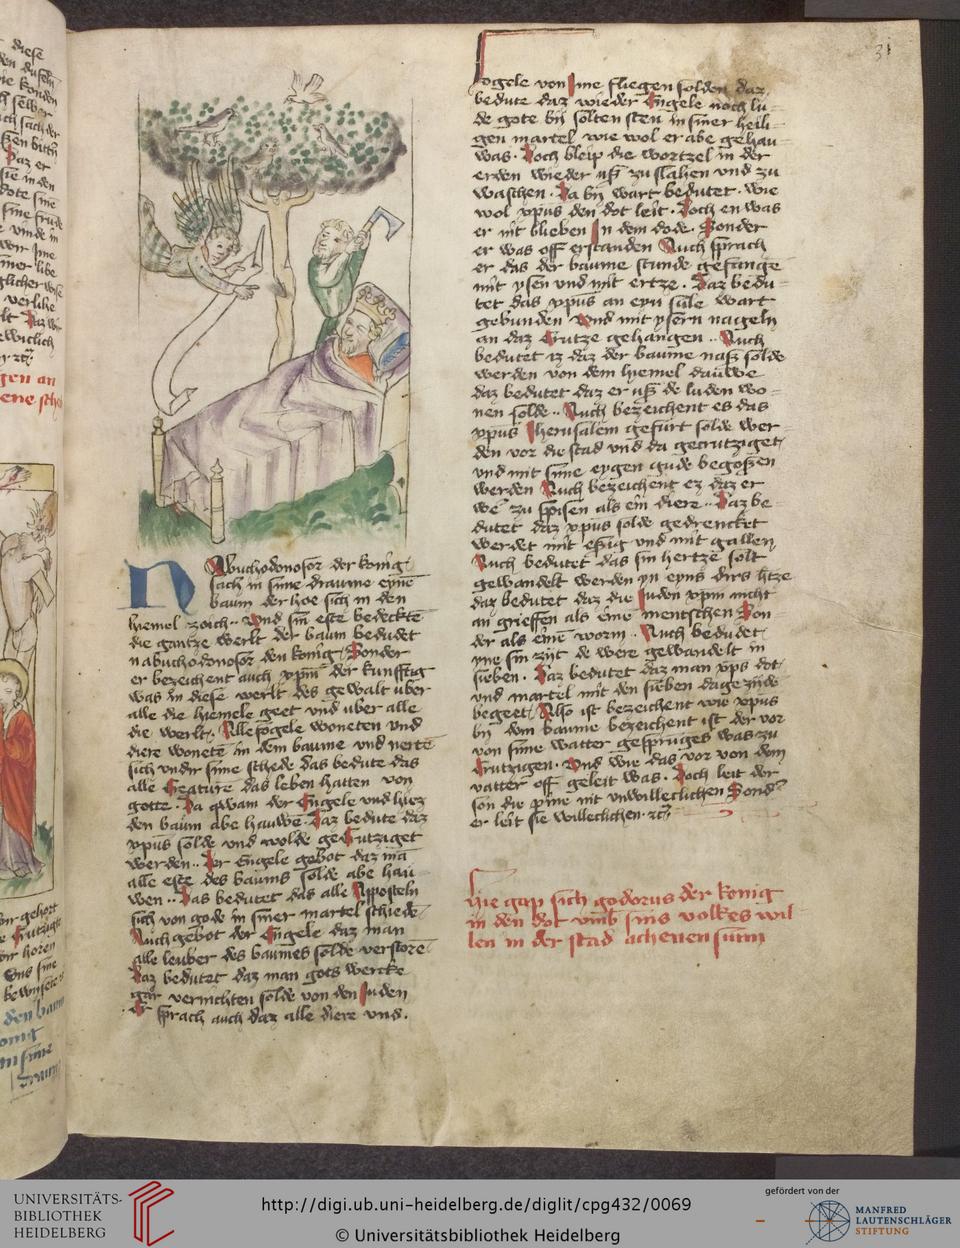 31
Nabuchodonosor der konig
sach in sime draume eyne
baum der hoe sich in den
hiemel zoich .. Vnd sin este bedeckte
die gantze werlt der baum bedudet
nabuchodonosor den konig Sonder
er bezeichent auch xpm̄ der kunfftig
was in diese werlt des gewalt uber
alle die hiemele geet vnd uber alle
die werlt. Alle fogele woneten vnd
diere wonete in dem baume vnd nerte
sich vndir sime schede das bedute das
alle Creature das leben hatten von
gotte. Da qwam der Engele vnd hiez
den baum abe hauwe. Daz bedute daz
xpūs solde vnd wolde geCrutziget
werden .. Der Engele gebot daz mā
alle este des baums solde abe hau
wen .. Das bedutet das alle Apposteln
sich von gode in siner martel schiede
Auch gebot der Engele daz man
alle leuber des baumes solde verstore
Daz bedutet daz man gots wercke
gar vernichten solde von den Juden
Er sprach auch daz alle diere vnd.
fogele von Ime fliegen solden daz
bedute daz wieder Engele noch lu
de gote bij solten sten in siner heili
gen martel wie wol er abe gehau
was. Doch bleip die wortzel in der
erden wieder uß zu slahen vnd zu
waschen. Da bij wart bedutet. wie
wol xpūs den dot leit. Doch en was
er nit blieben In dem dode. Sonder
er was off erstanden Auch sprach
er das der baume stunde gefange
mit ysen vnd mit ertze. Daz bedu
tet das xpūs an eyn sule wart
gebunden Vnd mit ysern nageln
an daz Crutze gehangen .. Auch
bedutet iz daz der baume naß solde
werden von dem hiemel dauwe
daz bedutet daz er uß de luden wo
nen solde .. Auch bezeichent es das
xpūs Jherusalem gefurt solde wer
den vor die stad vnd da gecrutziget
vnd mit sime eygen gude begoßen
werden Auch bezeichent ez daz er
we zu spisen als ein diere .. Daz be
dutet daz xpūs solde gedrencket
werdet mit eßig vnd mit gallen
Auch bedutet das sin hertze solt
gewandelt werden yn eyns dirs htze
daz bedutet daz die Juden xpm nicht
an grieffen als eine mentschen Son
der als eine worm .. Auch bedudet
yne sin zijt de were gewandelt in
sieben. Daz bedutet daz man xps dot
vnd martel mit den sieben dage zijde
begeet. Also ist bezeichent wie xpus
bij dem baume bezeichent ist der vor
von sime vatter gespruges was zu
Crutzigen. Vnd wie das vor von dem
vatter off geleit was. Doch leit der
son die pine nit vnwilleclichen Sond
er leit sie willeclichen. zc
Hie gap sich godorus der konig
in den dot vmb sins volkes wil
len in der stad achenensium
UNIVERSITÄTS-
BIBLIOTHEK
HEIDELBERG
http://digi.ub.uni-heidelberg.de/diglit/cpg432/0069
© Universitätsbibliothek Heidelberg
gefördert von der
MANFRED
LAUTENSCHLÄGER
STIFTUNG